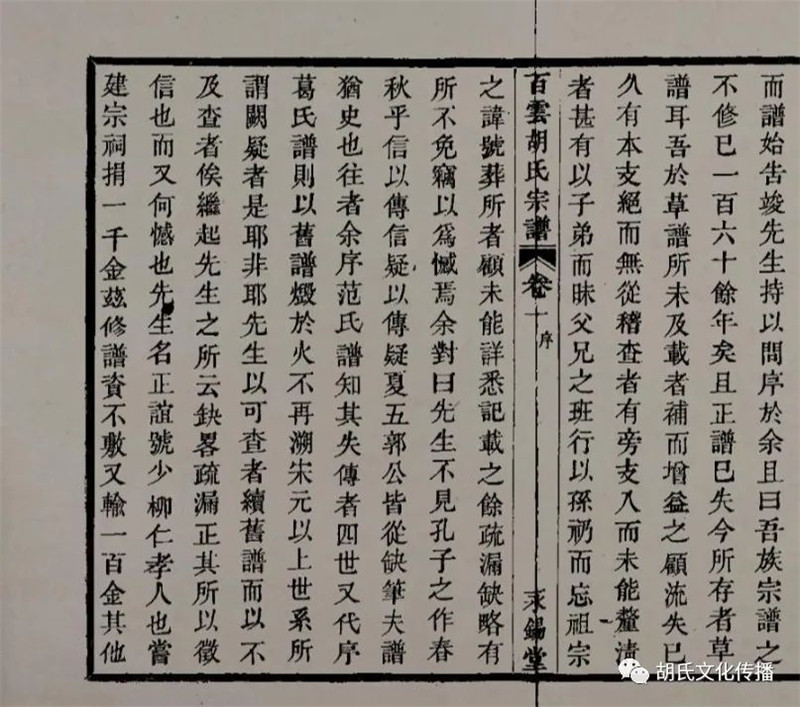 而譜始告竣先生持以問序於余且曰吾族宗譜之
不修已一百六十餘年矣且正譜已失今所存者草
譜耳吾於草譜所未及載者補而增益之顧流失已
久有本支絕而無從稽查者有旁支入而未能釐清
者甚有以子弟而昧父兄之班行以孫礽而忘祖宗
百雲胡氏宗譜 卷十 序 永錫堂
之諱號葬所者顧未能詳悉記載之餘疏漏缺略有
所不免竊以為憾焉余對曰先生不見孔子之作春
秋乎信以傳信疑以傳疑夏五郭公皆從缺筆夫譜
猶史也往者余序范氏譜知其失傳者四世又代序
葛氏譜則以舊譜燬於火不再溯宋元以上世系所
謂闕疑者是耶非耶先生以可查者續舊譜而以不
及查者俟繼起先生之所云缺畧疏漏正其所以徵
信也而又何憾也先生名正誼號少柳仁孝人也嘗
建宗祠捐一千金茲修譜資不敷又輸一百金其他
胡氏文化传播